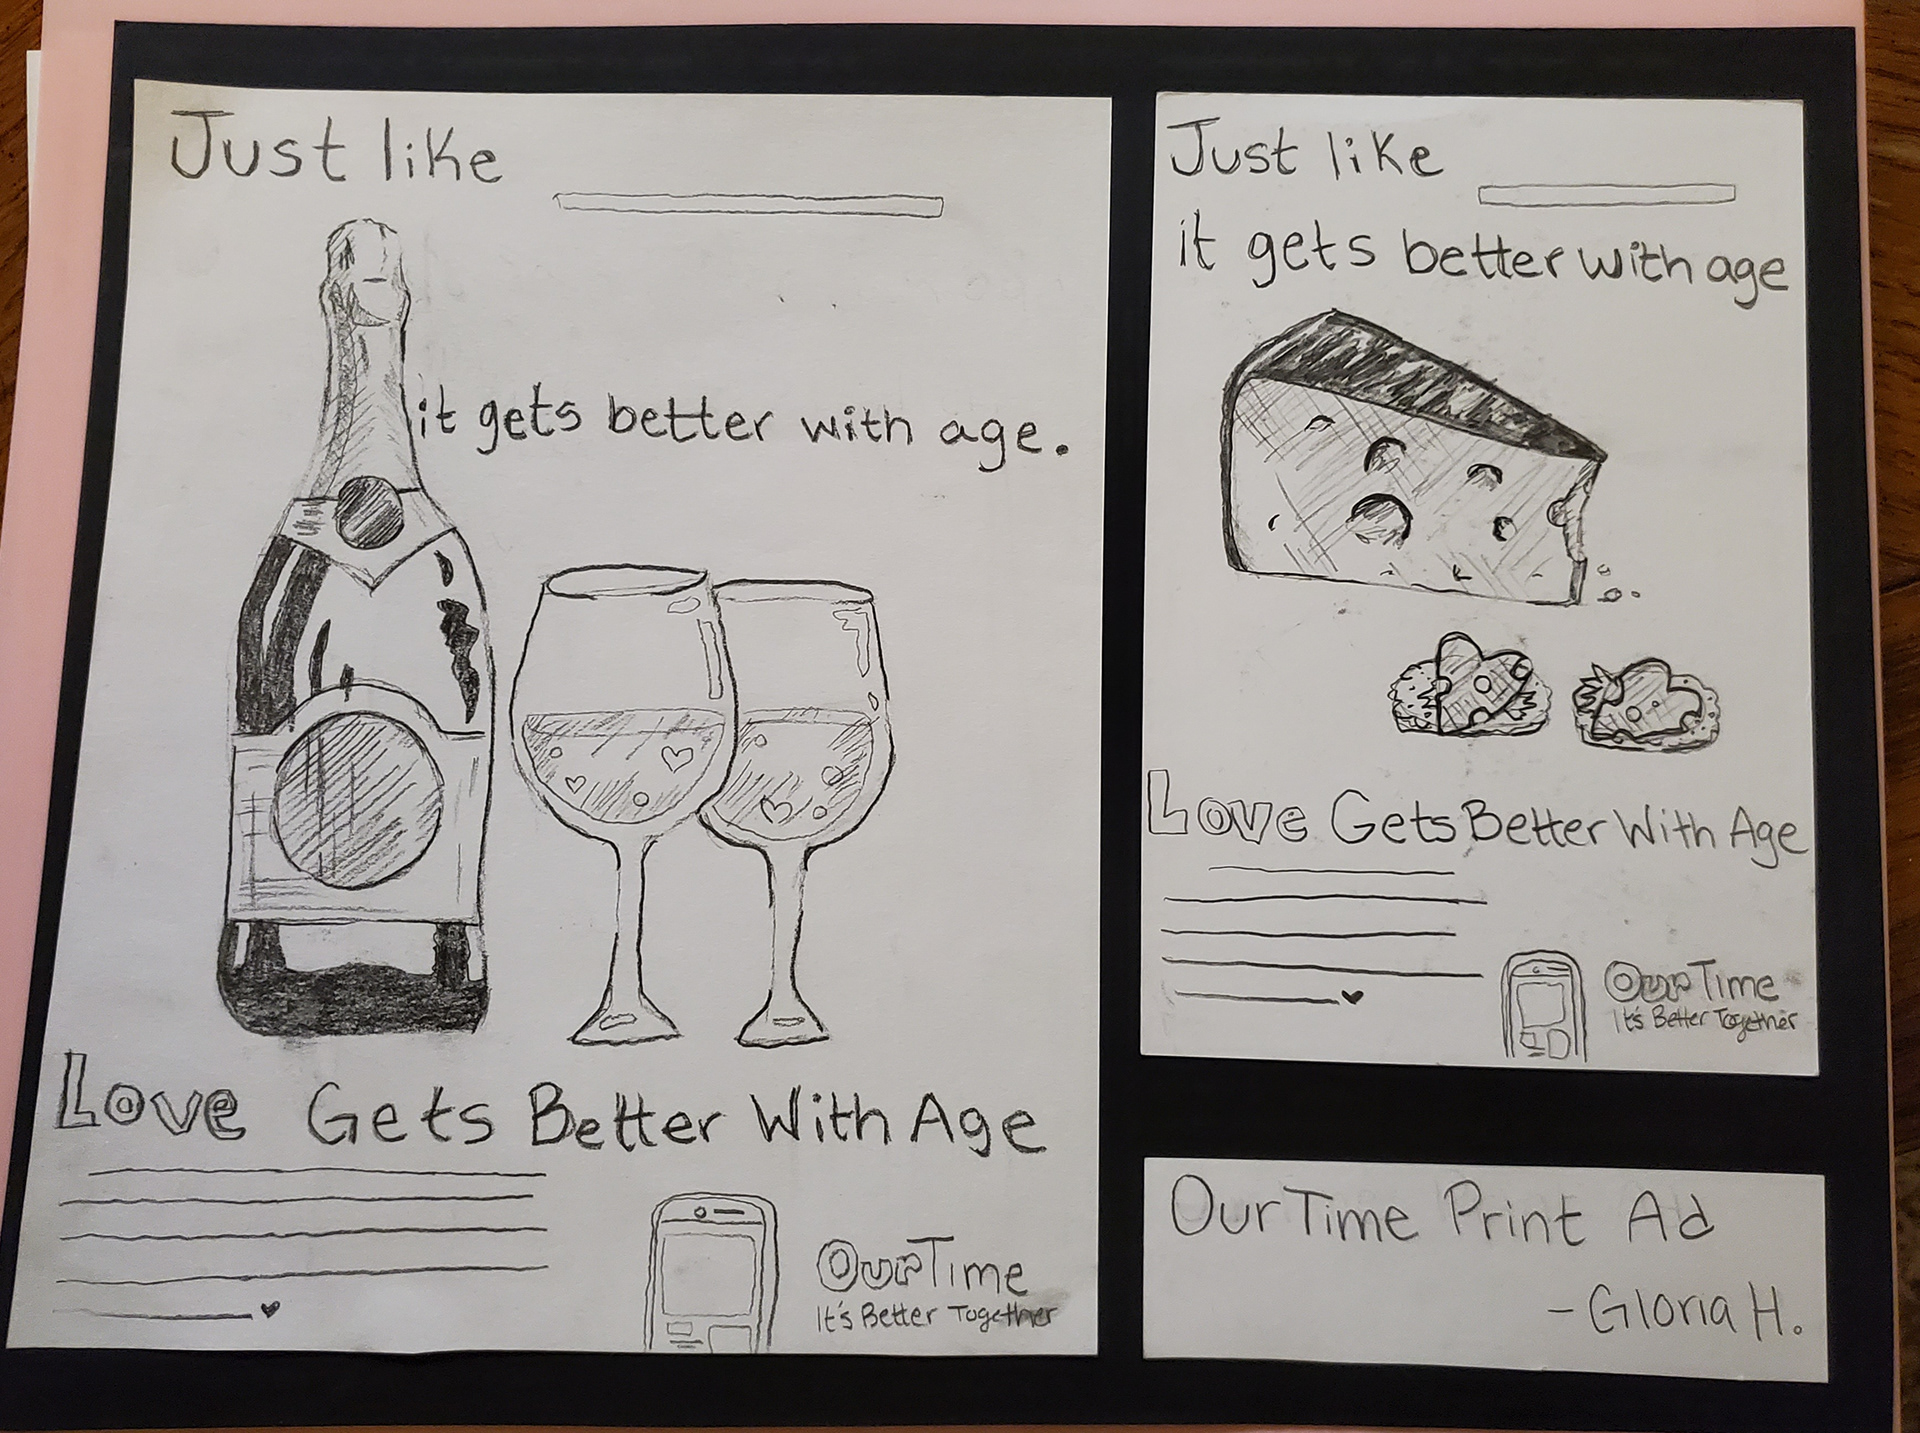 Just like
it gets better with age.
Love Gets Better With Age
OurTime
It's Better Together
Just like
it gets better with age
Love Gets Better With Age
OurTime
It's Better Together
OurTime Print Ad
- Gloria H.